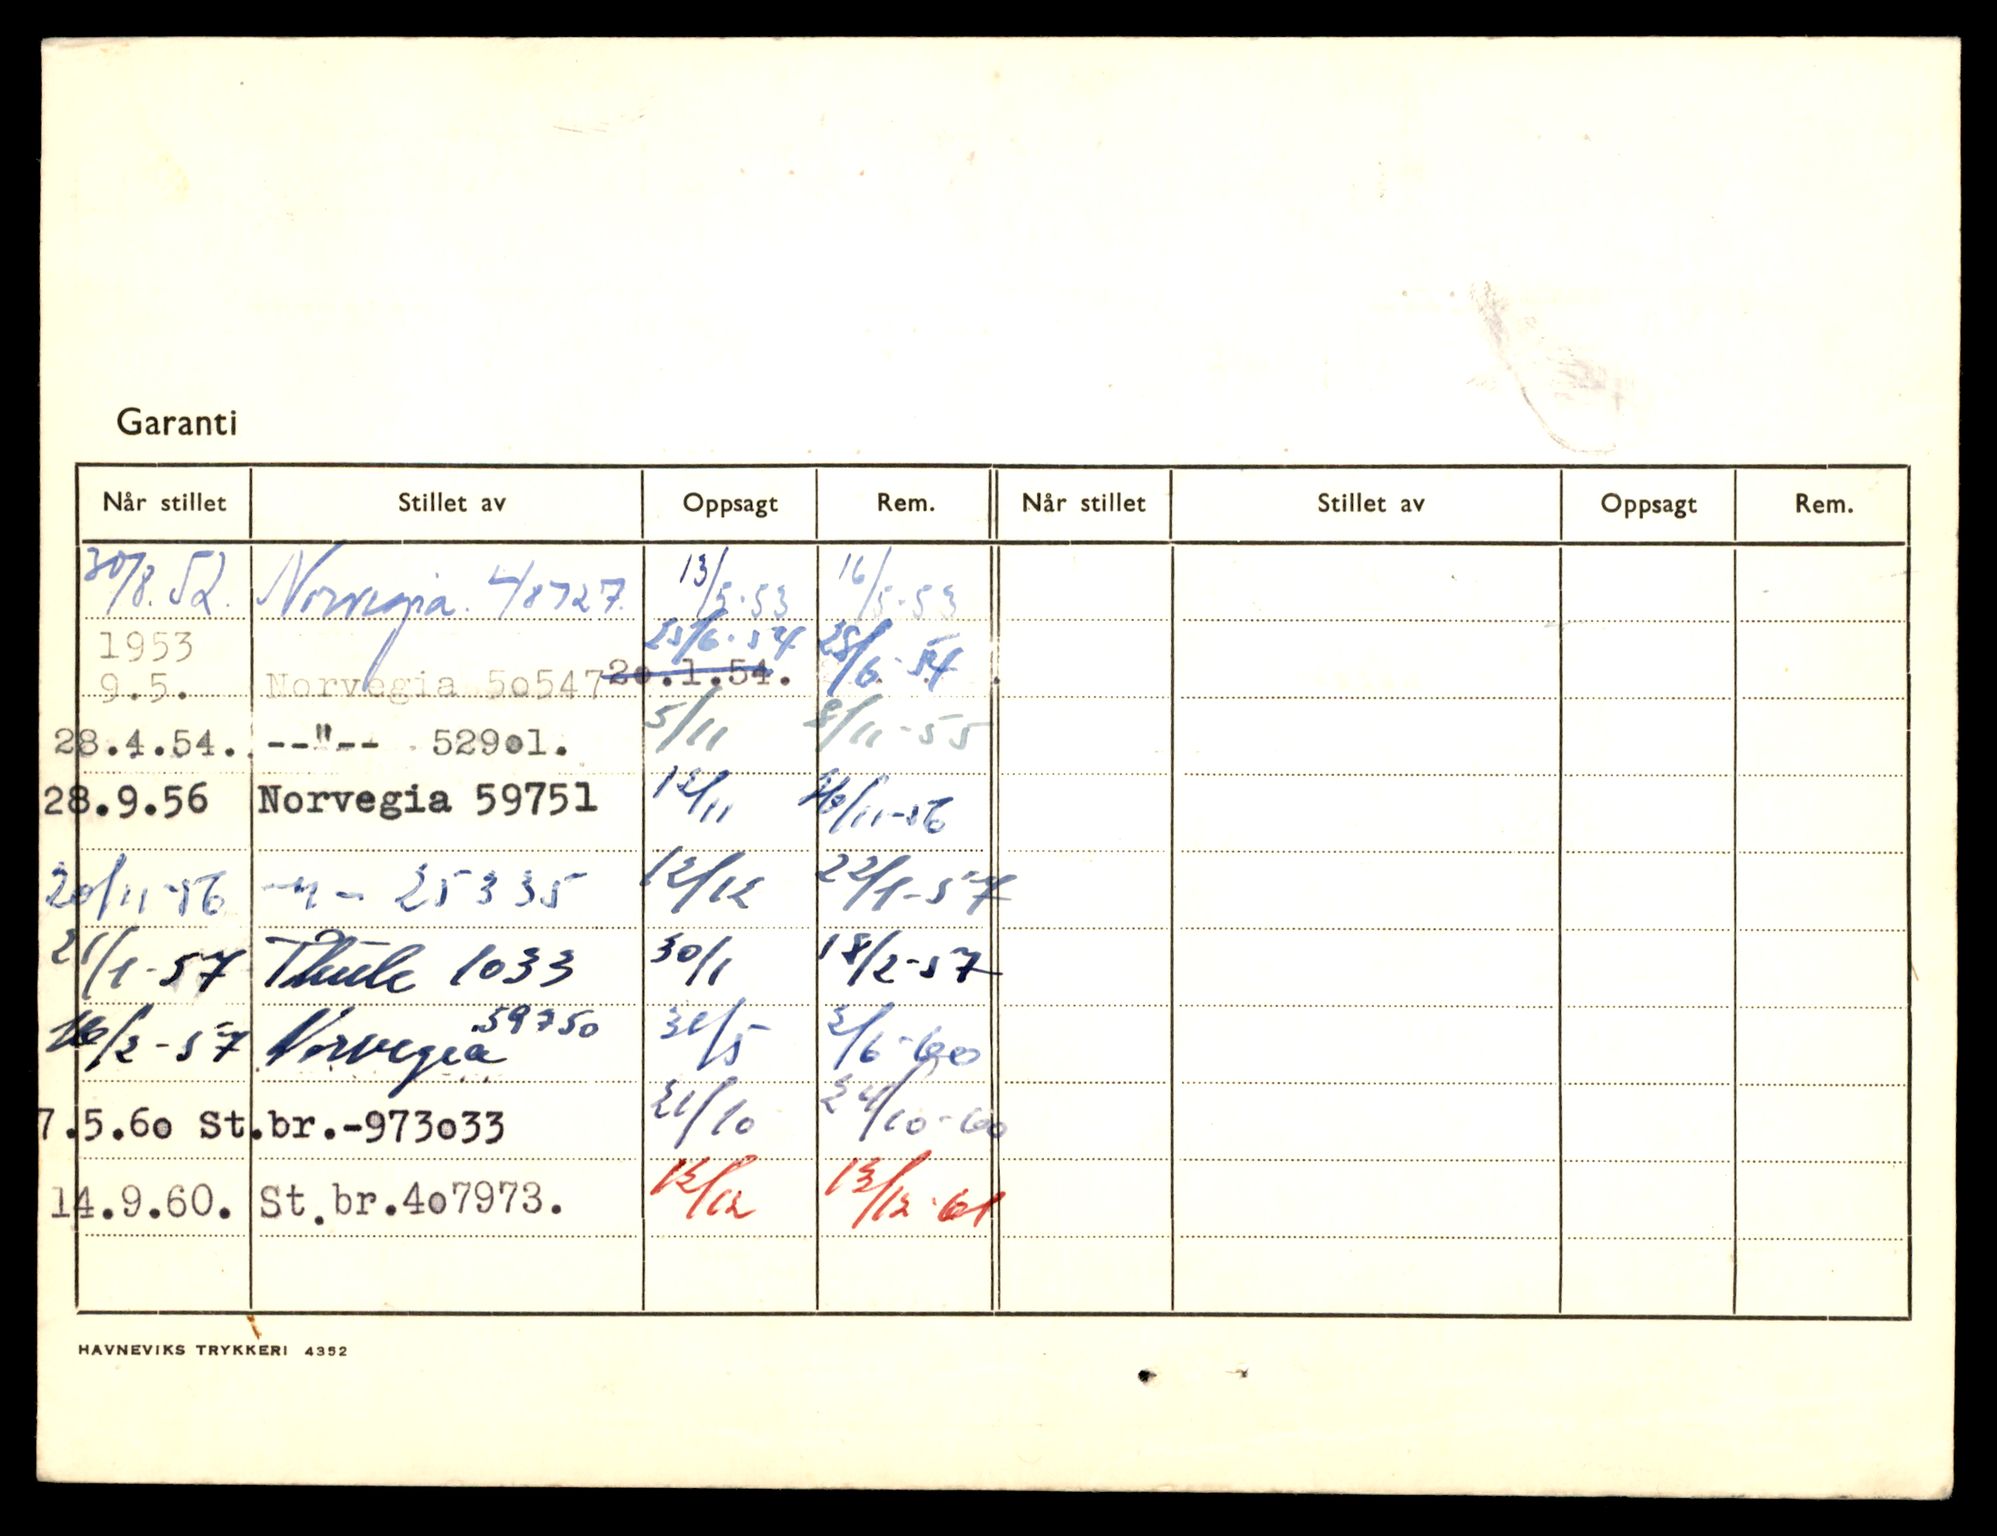 Garanti
Når stillet Stillet av Oppsagt Rem. Når stillet Stillet av Oppsagt Rem.
30/8.52. Norvegia. 48727. 13/5-53 16/5-53
1953 25/6-54 28/6-54
9.5. Norvegia 5o547 2o.1.54.
28.4.54. --"-- 529o1. 5/11 8/11-55
28.9.56 Norvegia 59751 12/11 /11-56
20/11-56 -"- 25335 12/12 22/1-57
21/1-57 Thule 1033 30/1 18/2-57
/2-57 Norvegia 59750 31/5 2/6-60
7.5.6o St.br.-973o33 21/10 24/10-60
14.9.60. St.br.4o7973. 12/12 13/12-61
HAVNEVIKS TRYKKERI 4352